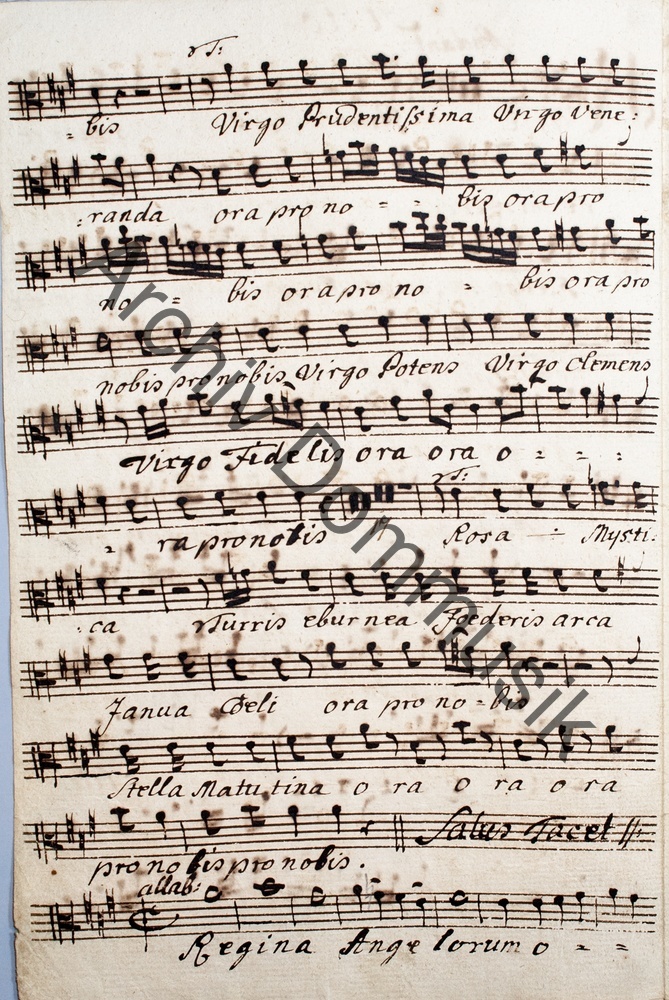 T:
= bis Virgo Prudentissima Virgo Vene:
:randa ora pro no = = bis ora pro
no = bis ora pro no = bis ora pro
nobis pro nobis Virgo Potens Virgo Clemens
Virgo Fidelis ora ora o = = :
T:
= ra pro nobis Rosa ÷ Mysti:
:ca Turris eburnea Foederis arca
Janua Coeli ora pro no = bis
Stella Matutina o ra o ra o ra
pro no bis pro nobis. Salus Tacet
allab:
Regina Angelorum o = =
Archiv Dommusik